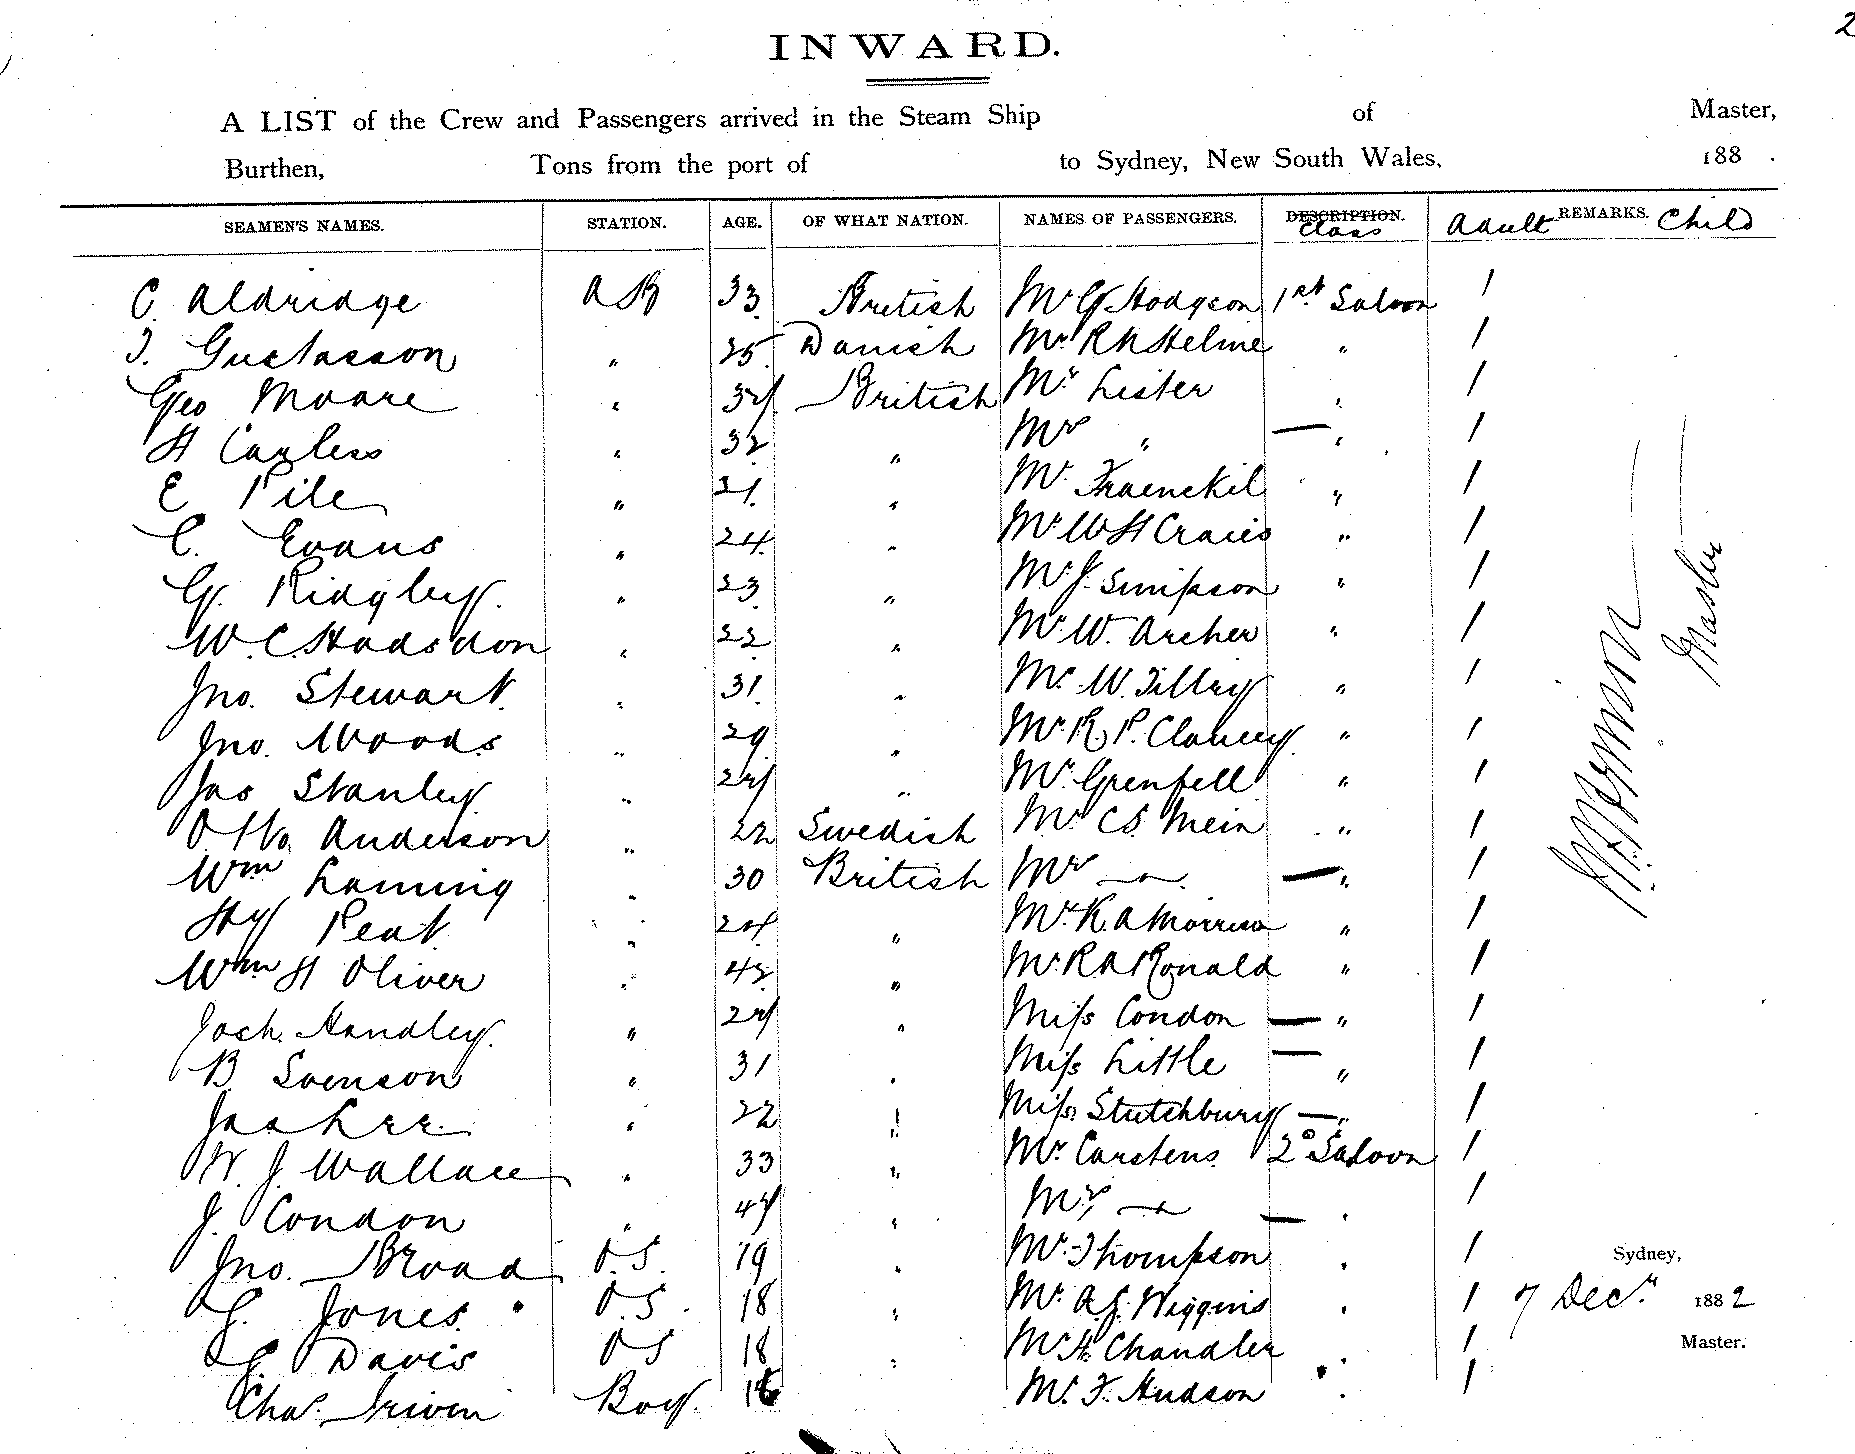 2
INWARD.
A LIST of the Crew and Passengers arrived in the Steam Ship of Master,
Burthen, Tons from the port of to Sydney, New South Wales, 188 .
SEAMEN'S NAMES. STATION. AGE. OF WHAT NATION. NAMES OF PASSENGERS. DESCRIPTION. Class Adult REMARKS. Child
C Aldridge AB 33 British Mr G Hodgson 1st Saloon 1
Gustasson " 25 Danish Mr R H Helme " 1
Geo Moore " 37 British Mr Lister " 1
H Cayless " 32 " Mrs " — " 1
E Pile " 21 " Mr Fraenckil " 1
C. Evans " 24 " Mr W H Craies " 1
G. Ridgley. " 23 " Mr J. Simpson " 1
W. C. Hodsdon " 22 " Mr W. Archer " 1
Jno. Stewart. " 31 " Mr W. Tilley " 1
Jno. Woods " 29 " Mr R. P. Clancey " 1
Jas Stanley " 27 " Mr Grenfell " 1
Otto Anderson " 22 Swedish Mr C S Mein " 1
Wm Laming " 30 British Mrs — " — " 1
Hy Peat. " 27 " Mr K. A Morrison " 1
Wm H Oliver " 42 " Mr R A Ronald " 1
Jack. Handley. " 27 " Miss Condon — " 1
B. Svenson " 31 " Miss Little — " 1
Jas Lee " 22 " Miss Stutchbury — " 1
W. J. Wallace " 33 " Mr Carstens 2° Saloon 1
J. Condon " 47 " Mrs — " — " 1
Jno. Broad O.S. 19 " Mr Thompson " 1 Sydney,
G. Jones. O.S. 18 " Mr A. J. Wiggins " 1 7 Decr 1882
C. Davis O S 18 " Mr H. Chandler " 1 Master.
Chas. Irwin Boy. 16 Mr F. Hudson " 1
Master